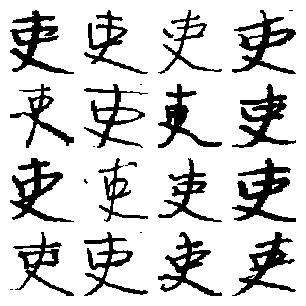 吏吏吏吏
吏吏吏吏
吏吏吏吏
吏吏吏吏